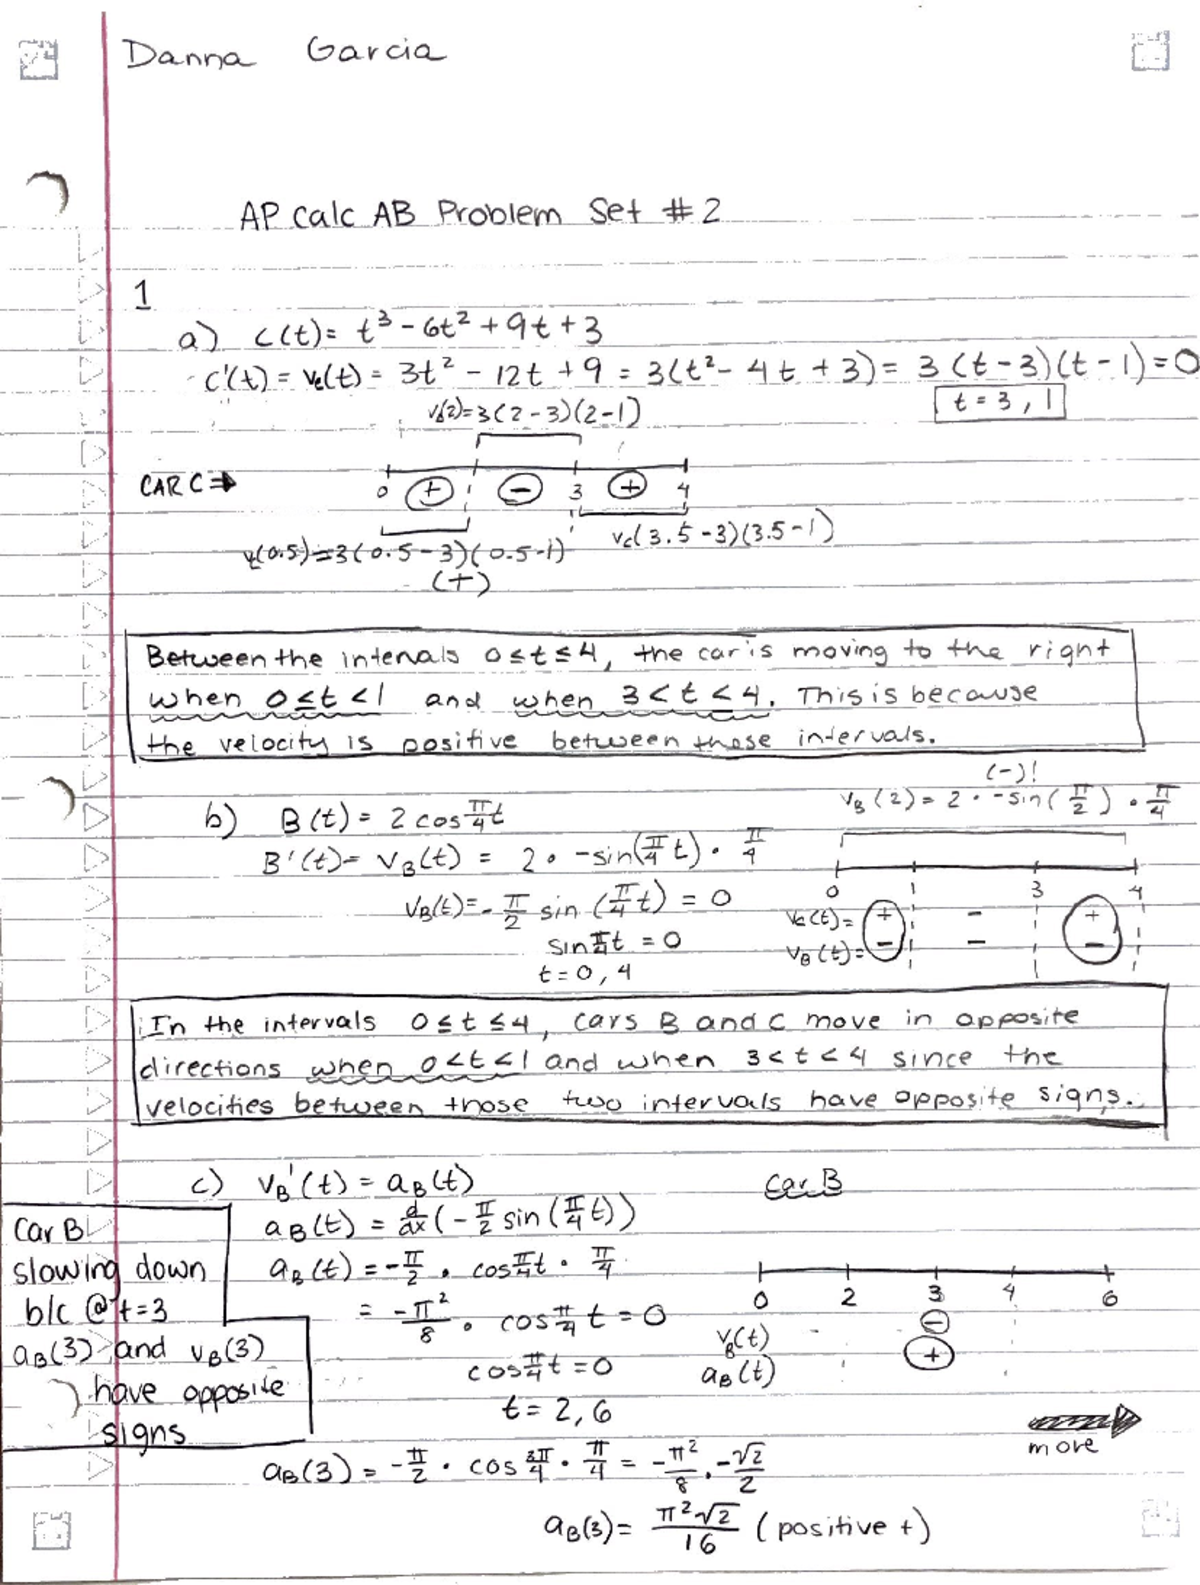 Danna Garcia
AP Calc AB Problem Set #2
1
a) C(t) = t³ - 6t² + 9t + 3
C'(t) = Vc(t) = 3t² - 12t + 9 = 3(t² - 4t + 3) = 3(t-3)(t-1) = 0
t = 3, 1
Vc(2) = 3(2-3)(2-1)
CAR C ⇒
0 + 1 - 3 + 4
Vc(3.5-3)(3.5-1)
Vc(0.5) = 3(0.5-3)(0.5-1)
(+)
Between the intervals 0≤t≤4, the car is moving to the right
when 0≤t<1 and when 3<t≤4. This is because
the velocity is positive between these intervals.
(-)!
VB(2) = 2 · -sin(π/2) · π/4
b) B(t) = 2 cos π/4 t
B'(t) = VB(t) = 2 · -sin(π/4 t) · π/4
0 1 3 4
VB(t) = -π/2 sin(π/4 t) = 0
Vc(t) = + - +
sin π/4 t = 0
VB(t) = - - -
t = 0, 4
In the intervals 0≤t≤4, cars B and C move in opposite
directions when 0<t<1 and when 3<t<4 since the
velocities between those two intervals have opposite signs.
c) VB'(t) = aB(t)
Car B
aB(t) = d/dx(-π/2 sin(π/4 t))
aB(t) = -π/2 · cos π/4 t · π/4
= -π²/8 · cos π/4 t = 0
cos π/4 t = 0
t = 2, 6
0 2 3 4 6
VB(t) - -
aB(t) +
Car B
slowing down
b/c @ t=3
aB(3) and VB(3)
have opposite
signs
more
aB(3) = -π/2 · cos 3π/4 · π/4 = -π²/8 · -√2/2
aB(3) = π²√2/16 (positive +)